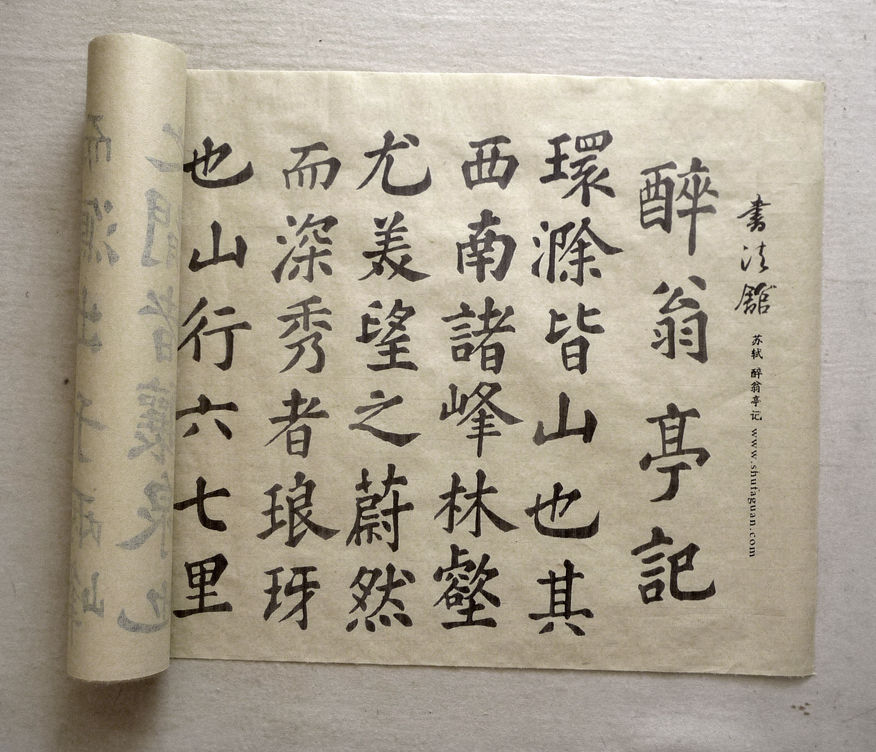 書法館 苏轼 醉翁亭记 www.shufaguan.com
醉翁亭記
環滁皆山也其
西南諸峰林壑
尤美望之蔚然
而深秀者琅玡
也山行六七里